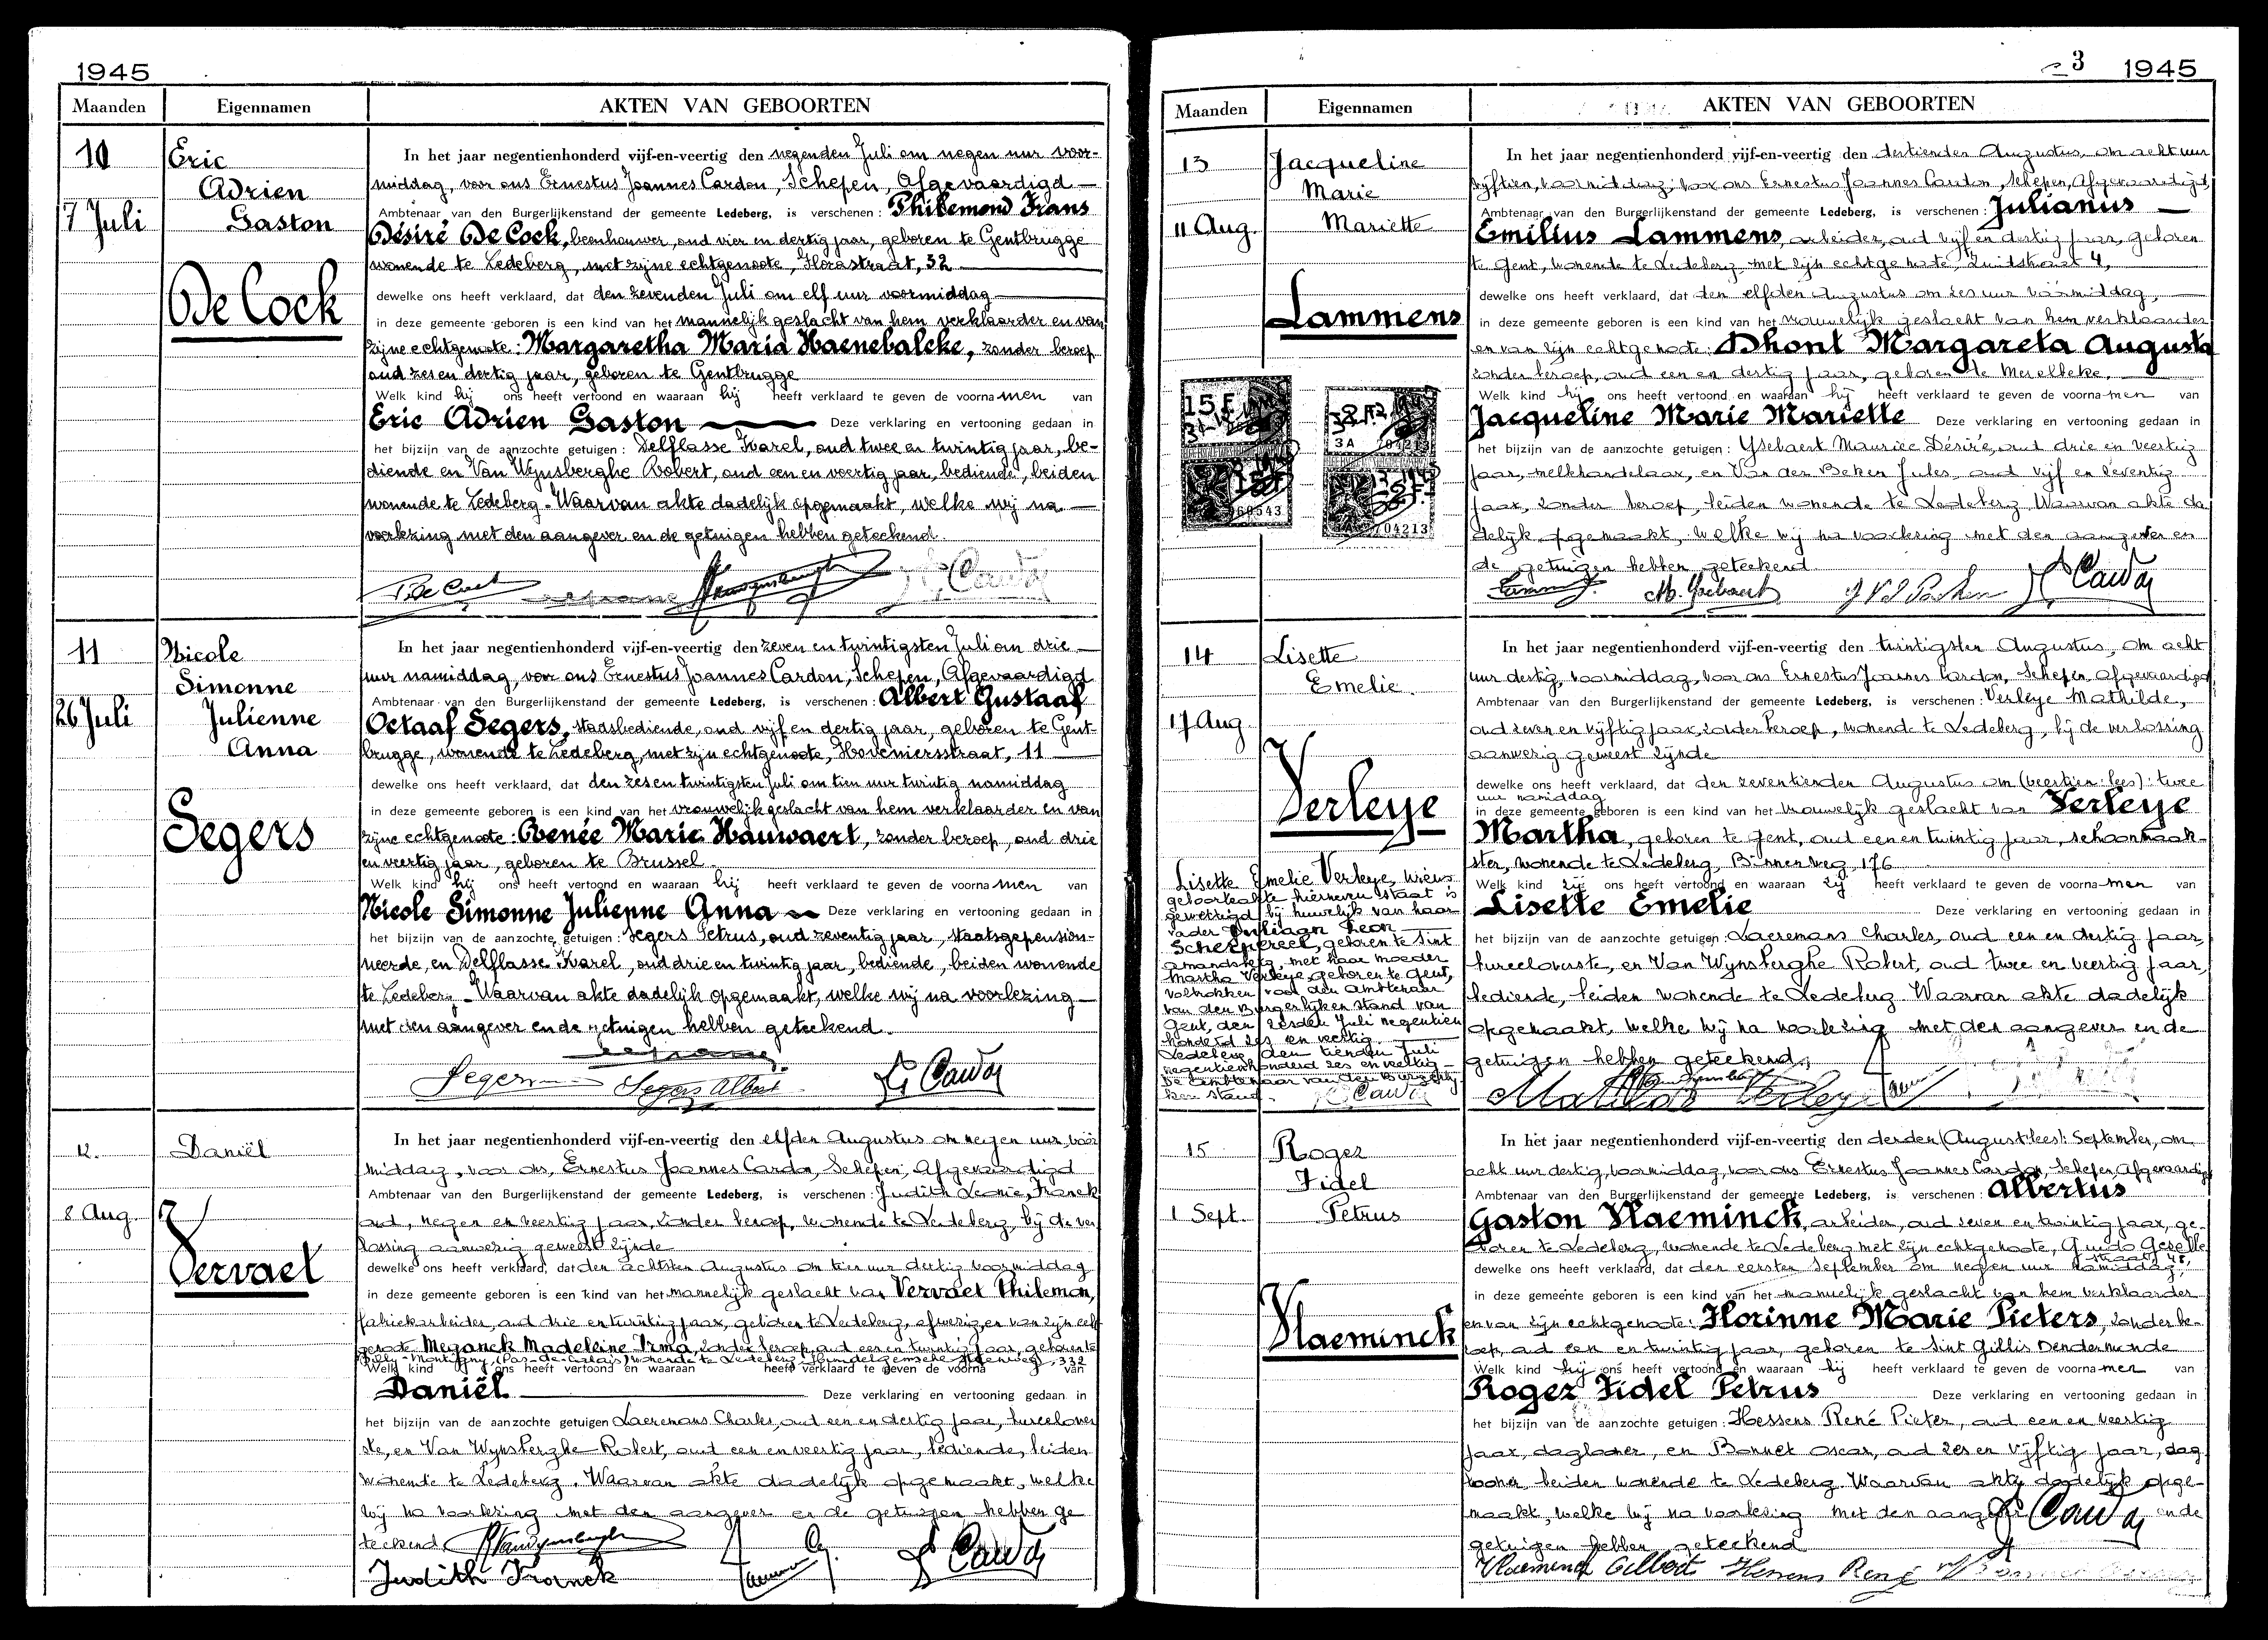 1945
Maanden Eigennamen AKTEN VAN GEBOORTEN
10
7 Juli
Eric
Adrien
Gaston
De Cock
In het jaar negentienhonderd vijf-en-veertig den negenden Juli om negen uur voor-
middag, voor ons Ernestus Joannes Cardon, Schepen, Afgevaardigd
Ambtenaar van den Burgerlijkenstand der gemeente Ledeberg, is verschenen: Philemond Frans
Désiré De Cock, beenhouwer, oud vier en dertig jaar, geboren te Gentbrugge
wonende te Ledeberg, met zijne echtgenoote, Horastraat, 32
dewelke ons heeft verklaard, dat den zevenden Juli om elf uur voormiddag
in deze gemeente geboren is een kind van het mannelijk geslacht van hem verklaarder en van
zijne echtgenoote: Margaretha Maria Haenebalcke, zonder beroep
oud zes en dertig jaar, geboren te Gentbrugge
Welk kind hij ons heeft vertoond en waaraan hij heeft verklaard te geven de voornamen van
Eric Adrien Gaston Deze verklaring en vertooning gedaan in
het bijzijn van de aanzochte getuigen: Delflasse Karel, oud twee en twintig jaar, be-
diende en Van Wynsberghe Robert, oud een en veertig jaar, bediende, beiden
wonende te Ledeberg. Waarvan akte dadelijk opgemaakt, welke wij na
voorlezing met den aangever en de getuigen hebben geteekend.
11
26 Juli
Nicole
Simonne
Julienne
Anna
Segers
In het jaar negentienhonderd vijf-en-veertig den zeven en twintigsten Juli om drie
uur namiddag, voor ons Ernestus Joannes Cardon, Schepen, Afgevaardigd
Ambtenaar van den Burgerlijkenstand der gemeente Ledeberg, is verschenen: Albert Gustaaf
Octaaf Segers, staatsbediende, oud vijf en dertig jaar, geboren te Gent-
brugge, wonende te Ledeberg, met zijn echtgenoote, Hoveniersstraat, 11
dewelke ons heeft verklaard, dat den zes en twintigsten Juli om tien uur twintig namiddag
in deze gemeente geboren is een kind van het vrouwelijk geslacht van hem verklaarder en van
zijne echtgenoote: Renée Marie Hauwaert, zonder beroep, oud drie
en veertig jaar, geboren te Brussel
Welk kind hij ons heeft vertoond en waaraan hij heeft verklaard te geven de voornamen van
Nicole Simonne Julienne Anna Deze verklaring en vertooning gedaan in
het bijzijn van de aanzochte getuigen: Segers Petrus, oud zeventig jaar, staatsgepension-
neerde, en Delflasse Karel, oud drie en twintig jaar, bediende, beiden wonende
te Ledeberg. Waarvan akte dadelijk opgemaakt, welke wij na voorlezing
met den aangever en de getuigen hebben geteekend.
Segers Segers Albert Cardon
12.
8 Aug.
Daniël
Vervaet
In het jaar negentienhonderd vijf-en-veertig den elfden Augustus om negen uur, voor
middag, voor ons, Ernestus Joannes Cardon, Schepen, Afgevaardigd
Ambtenaar van den Burgerlijkenstand der gemeente Ledeberg, is verschenen: Judith Leonie Franck
oud, negen en veertig jaar, zonder beroep, wonende te Ledeberg, bij de ver
lossing aanwezig geweest zijnde
dewelke ons heeft verklaard, dat den achtsten Augustus om tien uur dertig voormiddag
in deze gemeente geboren is een kind van het mannelijk geslacht van Vervaet Philemon,
fabriekarbeider, oud drie en twintig jaar, geboren te Ledeberg, afwezig, en van zijn echt
genoote Meganck Madeleine Irma, zonder beroep, oud een en twintig jaar, geboren te
(Pas-de-Calais) wonende te Ledeberg, Hundelgemsche Steenweg, 332
Welk kind zij ons heeft vertoond en waaraan heeft verklaard te geven de voorna van
Daniël Deze verklaring en vertooning gedaan in
het bijzijn van de aanzochte getuigen Laeremans Charles, oud een en dertig jaar, bureelover
ste, en Van Wynsberghe Robert, oud een en veertig jaar, bediende, beiden
wonende te Ledeberg. Waarvan akte dadelijk opgemaakt, welke
wij na voorlezing met den aangever en de getuigen hebben ge
teekend
Judith Franck Cardon
3 1945
Maanden Eigennamen AKTEN VAN GEBOORTEN
13
11 Aug.
Jacqueline
Marie
Mariette
Lammens
In het jaar negentienhonderd vijf-en-veertig den dertienden Augustus, om acht uur
vijftien, voormiddag, voor ons Ernestus Joannes Cardon, Schepen, Afgevaardigd
Ambtenaar van den Burgerlijkenstand der gemeente Ledeberg, is verschenen: Julianus
Emilius Lammens, arbeider, oud vijf en dertig jaar, geboren
te Gent, wonende te Ledeberg met zijn echtgenoote, Zuidstraat 4,
dewelke ons heeft verklaard, dat den elfden Augustus om zes uur voormiddag,
in deze gemeente geboren is een kind van het vrouwelijk geslacht van hem verklaarder
en van zijn echtgenoote: Dhont Margareta Augusta
zonder beroep, oud een en dertig jaar, geboren te Merelbeke.
Welk kind hij ons heeft vertoond en waaraan hij heeft verklaard te geven de voornamen van
Jacqueline Marie Mariette Deze verklaring en vertooning gedaan in
het bijzijn van de aanzochte getuigen: Ysebaert Maurice Désiré, oud drie en veertig
jaar, melkhandelaar, en Van der Beken Jules, oud vijf en zeventig
jaar, zonder beroep, beiden wonende te Ledeberg Waarvan akte da
delijk opgemaakt, welke wij na voorlezing met den aangever en
de getuigen hebben geteekend
M. Ysebaert Cardon
15 F
3A 704213
60543
704213
14
17 Aug.
Lisette
Emelie.
Verleye
In het jaar negentienhonderd vijf-en-veertig den twintigsten Augustus, om acht
uur dertig, voormiddag, voor ons Ernestus Joannes Cardon, Schepen, Afgevaardigd
Ambtenaar van den Burgerlijkenstand der gemeente Ledeberg, is verschenen: Verleye Mathilde,
oud zeven en vijftig jaar, zonder beroep, wonende te Ledeberg, bij de verlossing
aanwezig geweest zijnde
dewelke ons heeft verklaard, dat den zeventienden Augustus om (veertien: lees): twee
uur namiddag
in deze gemeente geboren is een kind van het vrouwelijk geslacht van Verleye
Martha, geboren te Gent, oud een en twintig jaar, schoonmaak-
ster, wonende te Ledeberg, Binnenweg, 176
Welk kind zij ons heeft vertoond en waaraan zij heeft verklaard te geven de voornamen van
Lisette Emelie Deze verklaring en vertooning gedaan in
het bijzijn van de aanzochte getuigen: Laeremans Charles, oud een en dertig jaar,
bureeloverste, en Van Wynsberghe Robert, oud twee en veertig jaar,
bediende, beiden wonende te Ledeberg. Waarvan akte dadelijk
opgemaakt, welke wij na voorlezing met den aangever en de
getuigen hebben geteekend.
Lisette Emelie Verleye, wiens
geboorteakte hierneven staat is
gewettigd bij huwelijk van haar
vader Leon
Scheerpereel, geboren te Sint
Amandsberg, met haar moeder
Martha Verleye geboren te Gent,
voltrokken voor den ambtenaar
van den Burgerlijken stand van
Gent, den zesden Juli negentien
honderd zes en veertig.
Ledeberg den tienden Juli
negentienhonderd zes en veertig
De ambtenaar van den Burgerlij
ken stand.
Cardon
15
1 Sept.
Roger
Fidel
Petrus
Vlaeminck
In het jaar negentienhonderd vijf-en-veertig den derden (August: lees): September, om
acht uur dertig, voormiddag, voor ons Ernestus Joannes Cardon, Schepen, Afgevaardigd
Ambtenaar van den Burgerlijkenstand der gemeente Ledeberg, is verschenen: Albertus
Gaston Vlaeminck, arbeider, oud zeven en twintig jaar, ge-
boren te Ledeberg, wonende te Ledeberg met zijn echtgenoote, Guido Gezelle
straat, 48,
dewelke ons heeft verklaard, dat den eersten September om negen uur namiddag,
in deze gemeente geboren is een kind van het mannelijk geslacht van hem verklaarder
en van zijn echtgenoote: Florinne Marie Pieters, zonder be-
roep, oud een en twintig jaar, geboren te Sint Gillis Dendermonde
Welk kind hij ons heeft vertoond en waaraan hij heeft verklaard te geven de voornamen van
Roger Fidel Petrus Deze verklaring en vertooning gedaan in
het bijzijn van de aanzochte getuigen: Hessens René Pieter, oud een en veertig
jaar, daglooner, en Bonnet Oscar, oud zes en vijftig jaar, dag
looner beiden wonende te Ledeberg Waarvan akte dadelijk opge-
maakt, welke wij na voorlezing met den aangever en de
getuigen hebben geteekend
Cardon
Vlaeminck Hessens René